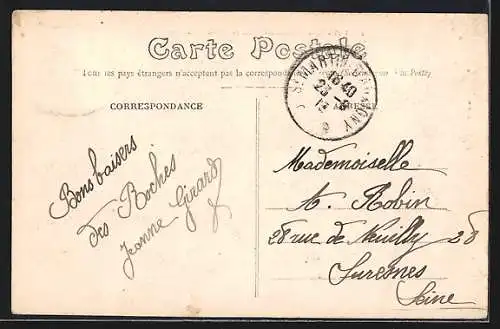 Carte Postale
Tous les pays étrangers n'acceptent pas la correspondance
CORRESPONDANCE
ST MARTIN
16 40
23
13
Bons baisers
des Roches
Jeanne Girard
Mademoiselle
A. Robin
28 rue de Neuilly 28
Suresnes
Seine